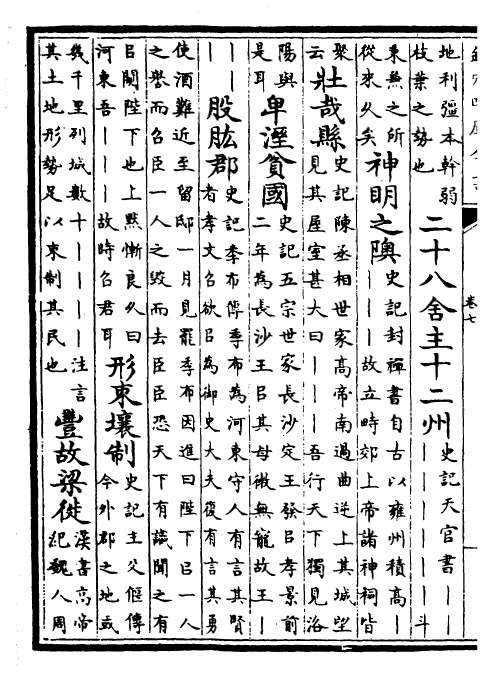 欽定四庫全書
卷七
地利彊本幹弱
枝葉之勢也
二十八舍主十二州
史記天官書丨丨
丨丨丨丨丨丨斗
秉兼之所
從來久矣
神明之隩
史記封禪書自古以雍州積高丨
丨丨丨故立畤郊上帝諸神祠皆
聚
云
壯哉縣
史記陳丞相世家高帝南過曲逆上其城望
見其屋室甚大曰丨丨丨吾行天下獨見洛
陽與
是耳
卑溼貧國
史記五宗世家長沙定王發㠯孝景前
二年為長沙王㠯其母微無寵故王丨
丨丨
丨
股肱郡
史記季布傳季布為河東守人有言其賢
者孝文召欲㠯為御史大夫復有言其勇
使酒難近至留邸一月見罷季布因進曰陛下㠯一人
之譽而召臣一人之毀而去臣臣恐天下有識聞之有
㠯闚陛下也上黙慚良久曰
河東吾丨丨丨故時召君耳
形束壤制
史記主父偃傳
今外郡之地或
幾千里列城數十丨丨丨丨注言
其土地形勢足以束制其民也
豐故梁徙
漢書高帝
紀魏人周